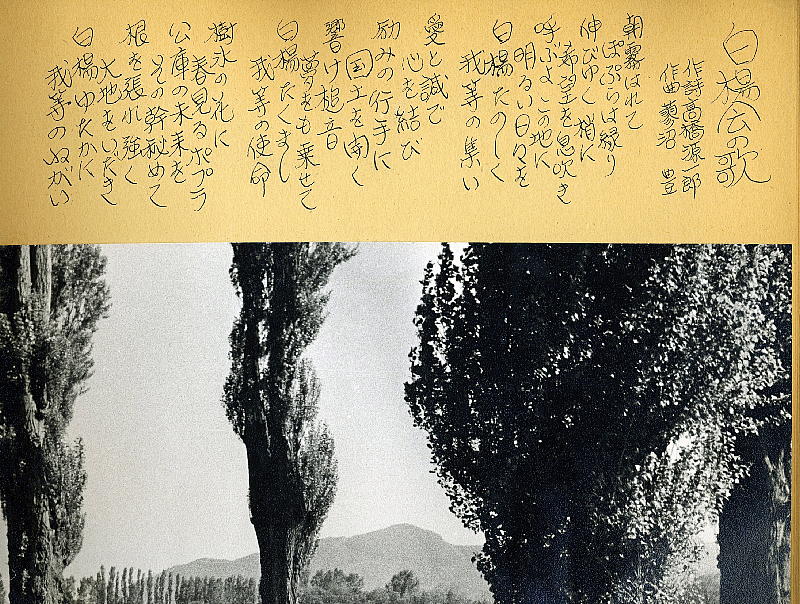 白楊会の歌
作詩 高橋源一郎
作曲 蓼沼 豊
朝霧はれて
ぽぷらは緑り
伸びゆく梢に
希望を息吹き
呼ぶよこの地に
明るい日々を
白楊たのしく
我等の集い
愛と誠で
心を結び
励みの行手に
国土を開く
響け槌音
夢をも乗せて
白楊たくまし
我等の使命
樹氷の花に
春見るポプラ
公庫の未来を
その幹秘めて
根を張れ強く
大地をいだき
白楊ゆたかに
我等のねがい